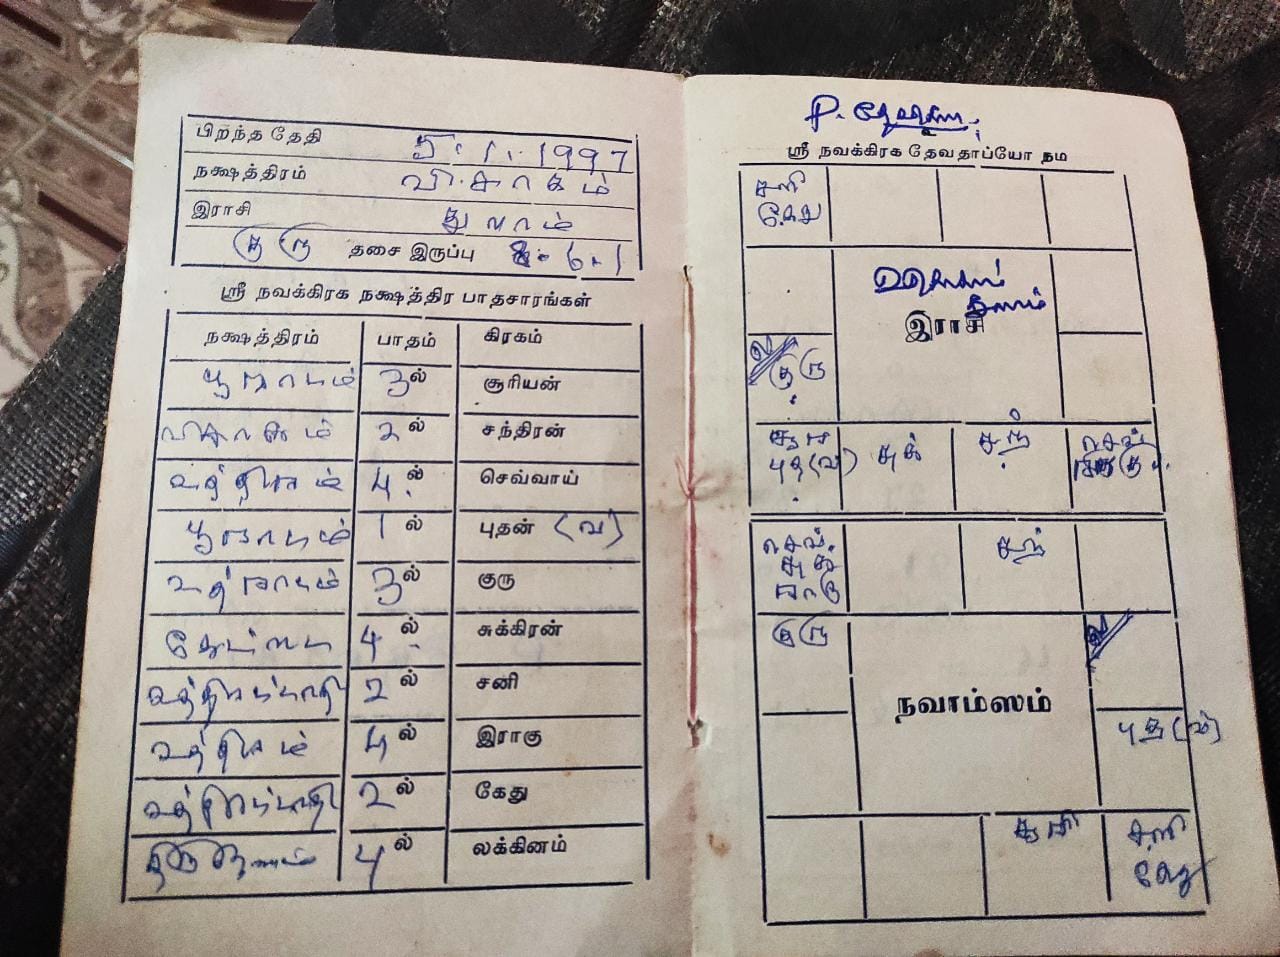 பிறந்த தேதி 5.1.1997
நக்ஷத்திரம் விசாகம்
இராசி துலாம்
குரு தசை இருப்பு 6.1
ஸ்ரீ நவக்கிரக நக்ஷத்திர பாதசாரங்கள்
நக்ஷத்திரம் பாதம் கிரகம்
பூராடம் 3ல் சூரியன்
விசாகம் 2ல் சந்திரன்
உத்திரம் 4ல் செவ்வாய்
பூராடம் 1ல் புதன் (வ)
உத்ராடம் 3ல் குரு
கேட்டை 4ல் சுக்கிரன்
உத்திரட்டாதி 2ல் சனி
உத்திரம் 4ல் இராகு
உத்திரட்டாதி 2ல் கேது
திருவோணம் 4ல் லக்கினம்
P.
ஸ்ரீ நவக்கிரக தேவதாப்யோ நம
சனி
கேது
இராசி
ல
குரு
சூரி
புத(வ) சுக் சந் செவ்
செவ். சந்
சுக்
ராகு
குரு ல
நவாம்ஸம்
புத(வ)
சூரி சனி
கேது